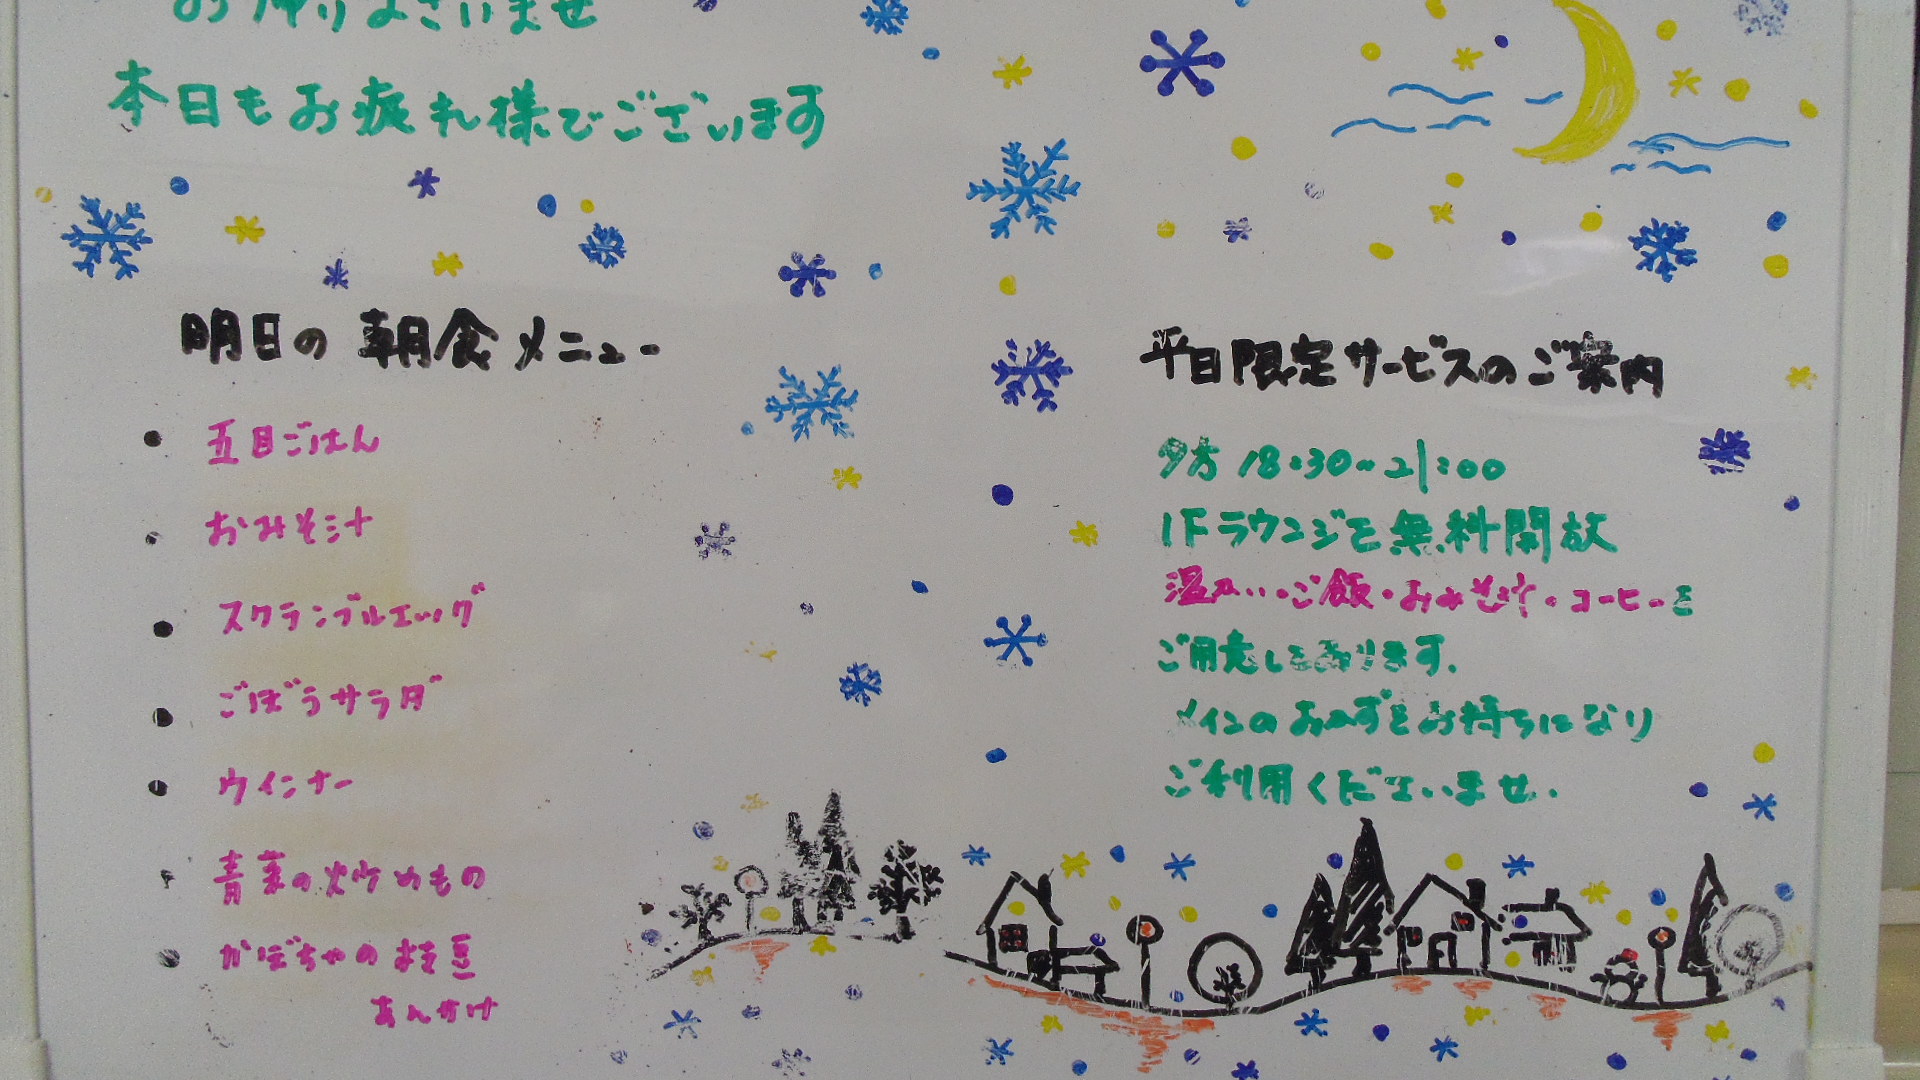 お帰りなさいませ
本日もお疲れ様でございます
明日の朝食メニュー
• 五目ごはん
• おみそ汁
• スクランブルエッグ
• ごぼうサラダ
• ウインナー
• 青菜の炒めもの
• かぼちゃの枝豆
あんかけ
平日限定サービスのご案内
夕方 18:30~21:00
1Fラウンジを無料開放
温かい・ご飯・おみそ汁・コーヒーを
ご用意しております.
メインのおかずをお持ちになり
ご利用くださいませ.